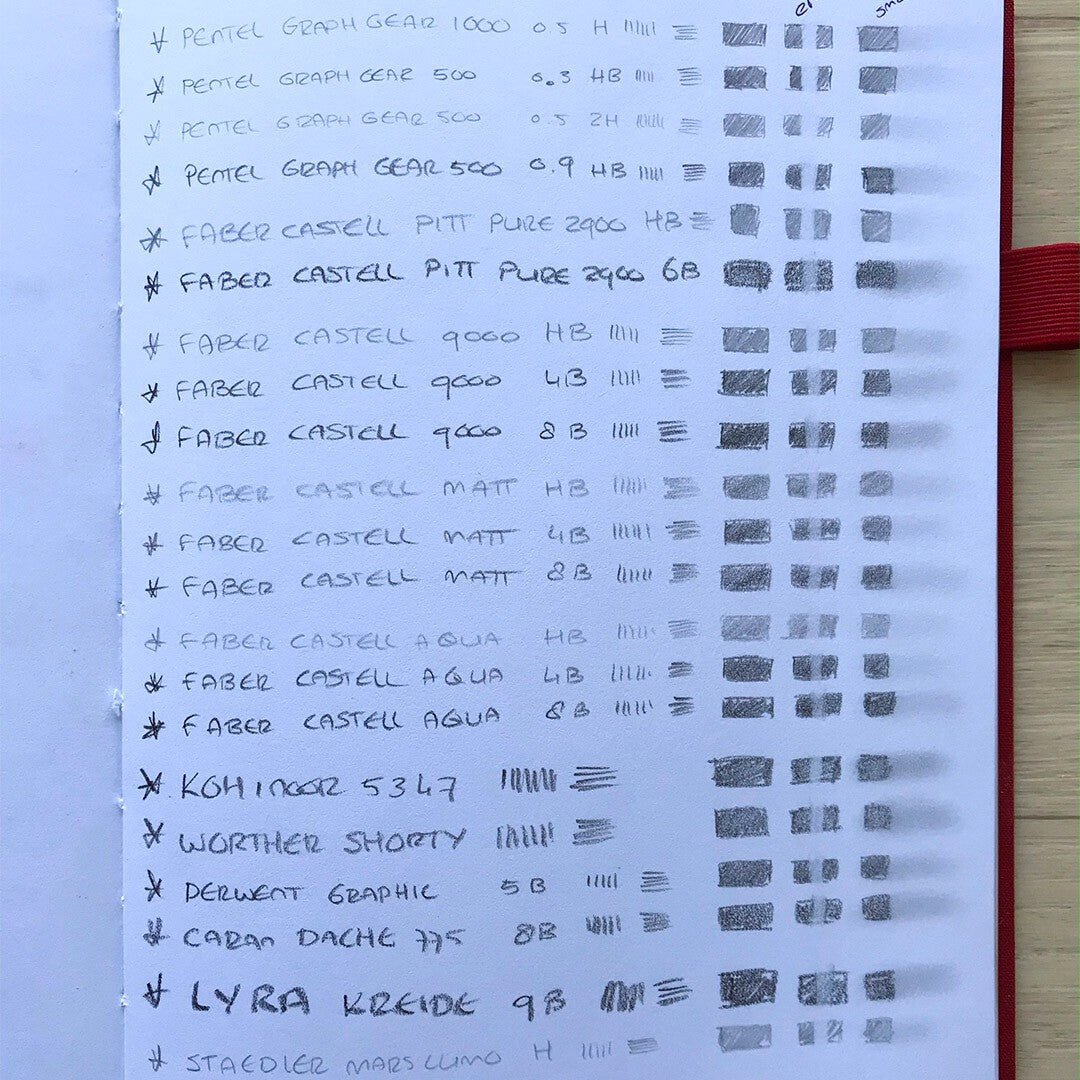 PENTEL GRAPH GEAR 1000 0.5 H
PENTEL GRAPH GEAR 500 0.3 HB
PENTEL GRAPH GEAR 500 0.5 2H
PENTEL GRAPH GEAR 500 0.9 HB
FABER CASTELL PITT PURE 2900 HB
FABER CASTELL PITT PURE 2900 6B
FABER CASTELL 9000 HB
FABER CASTELL 9000 4B
FABER CASTELL 9000 8B
FABER CASTELL MATT HB
FABER CASTELL MATT 4B
FABER CASTELL MATT 8B
FABER CASTELL AQUA HB
FABER CASTELL AQUA 4B
FABER CASTELL AQUA 8B
KOHINOOR 5347
WORTHER SHORTY
DERWENT GRAPHIC 5B
CARAN DACHE 775 8B
LYRA KREIDE 9B
STAEDLER MARS LUMO H